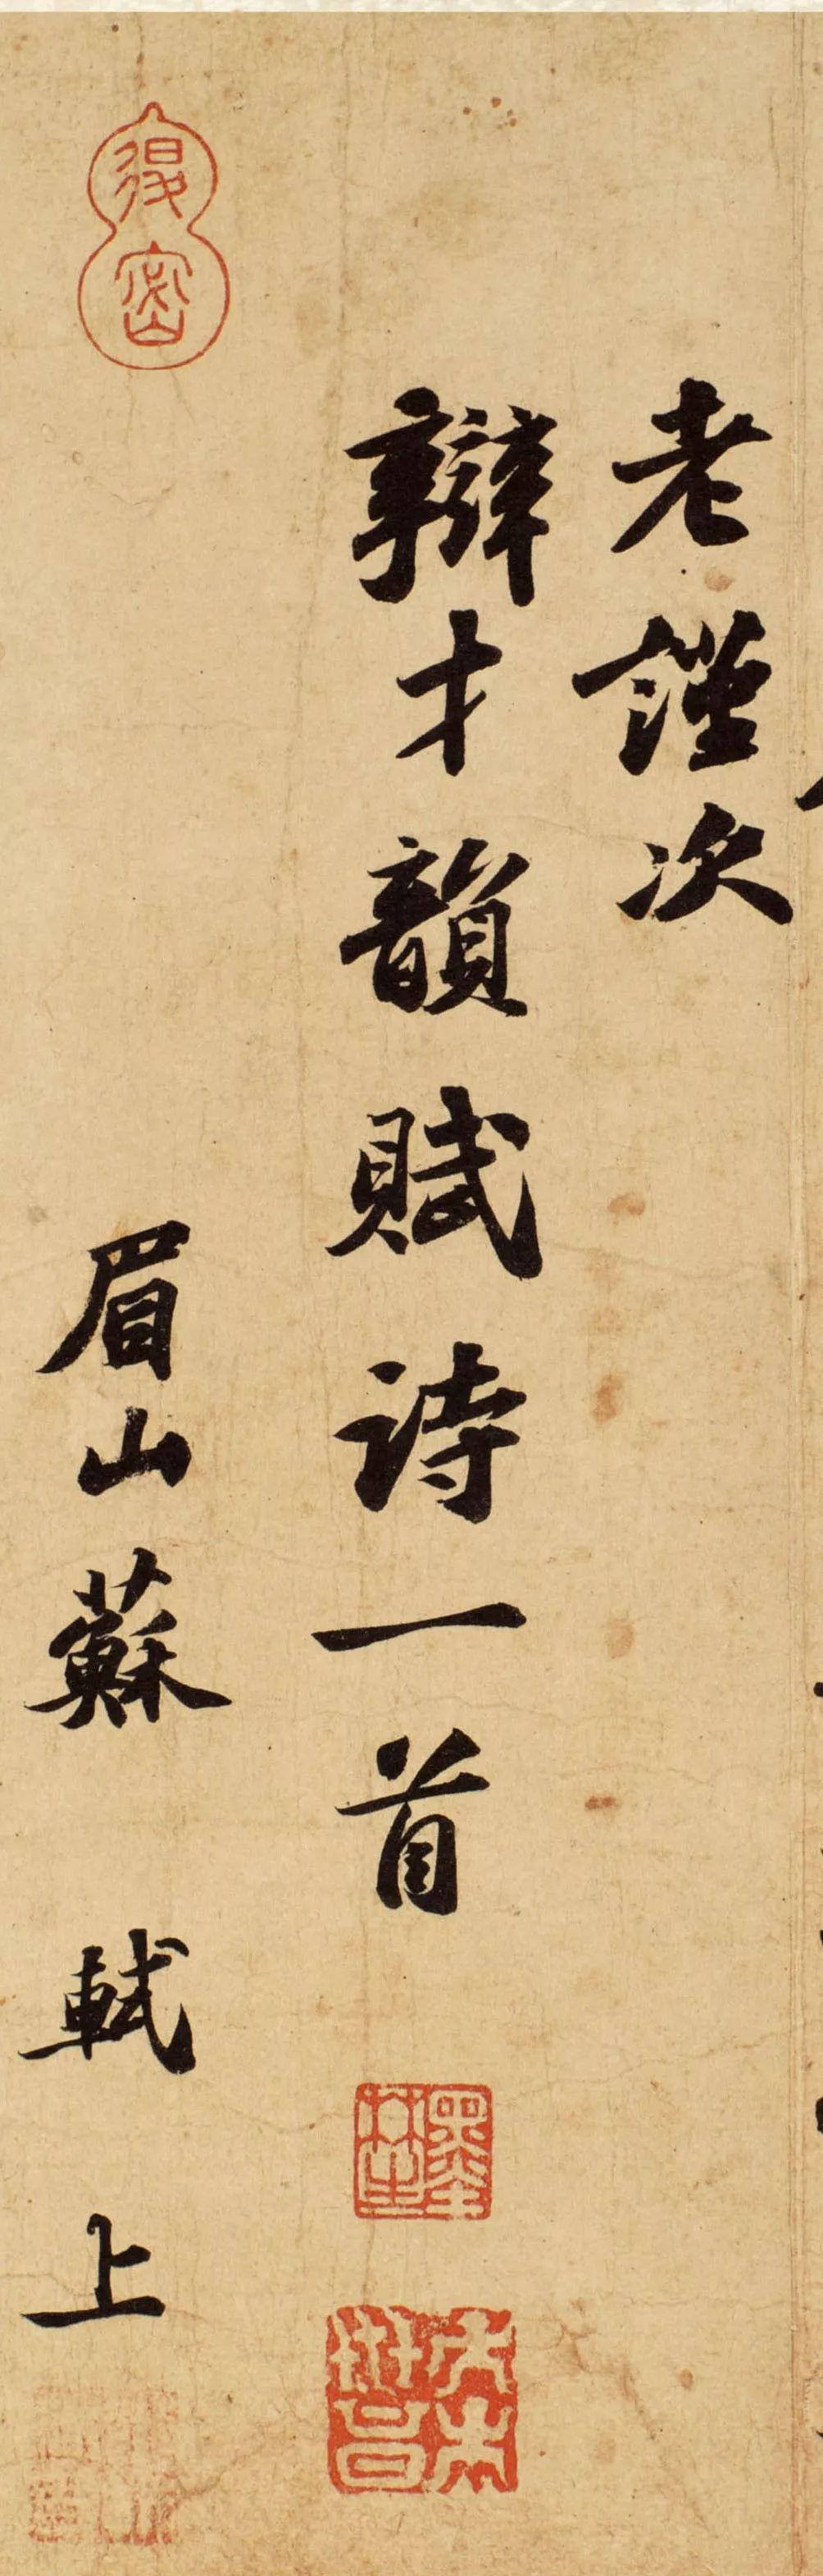 老謹次
辯才韻賦詩一首
眉山蘇軾上